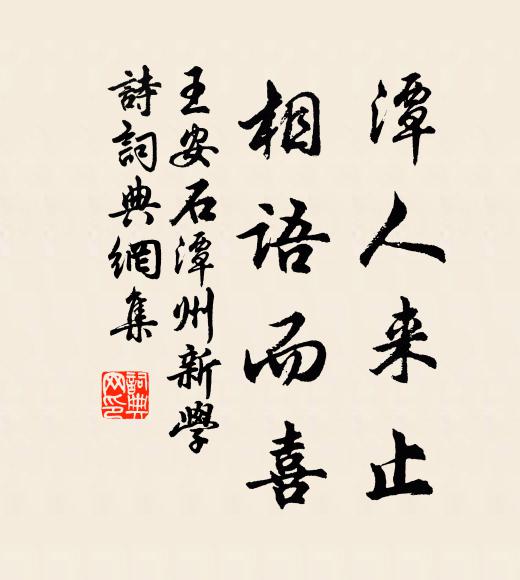 潭人来止
相語而喜
王安石潭州新學
詩詞典網集
詞典
网印